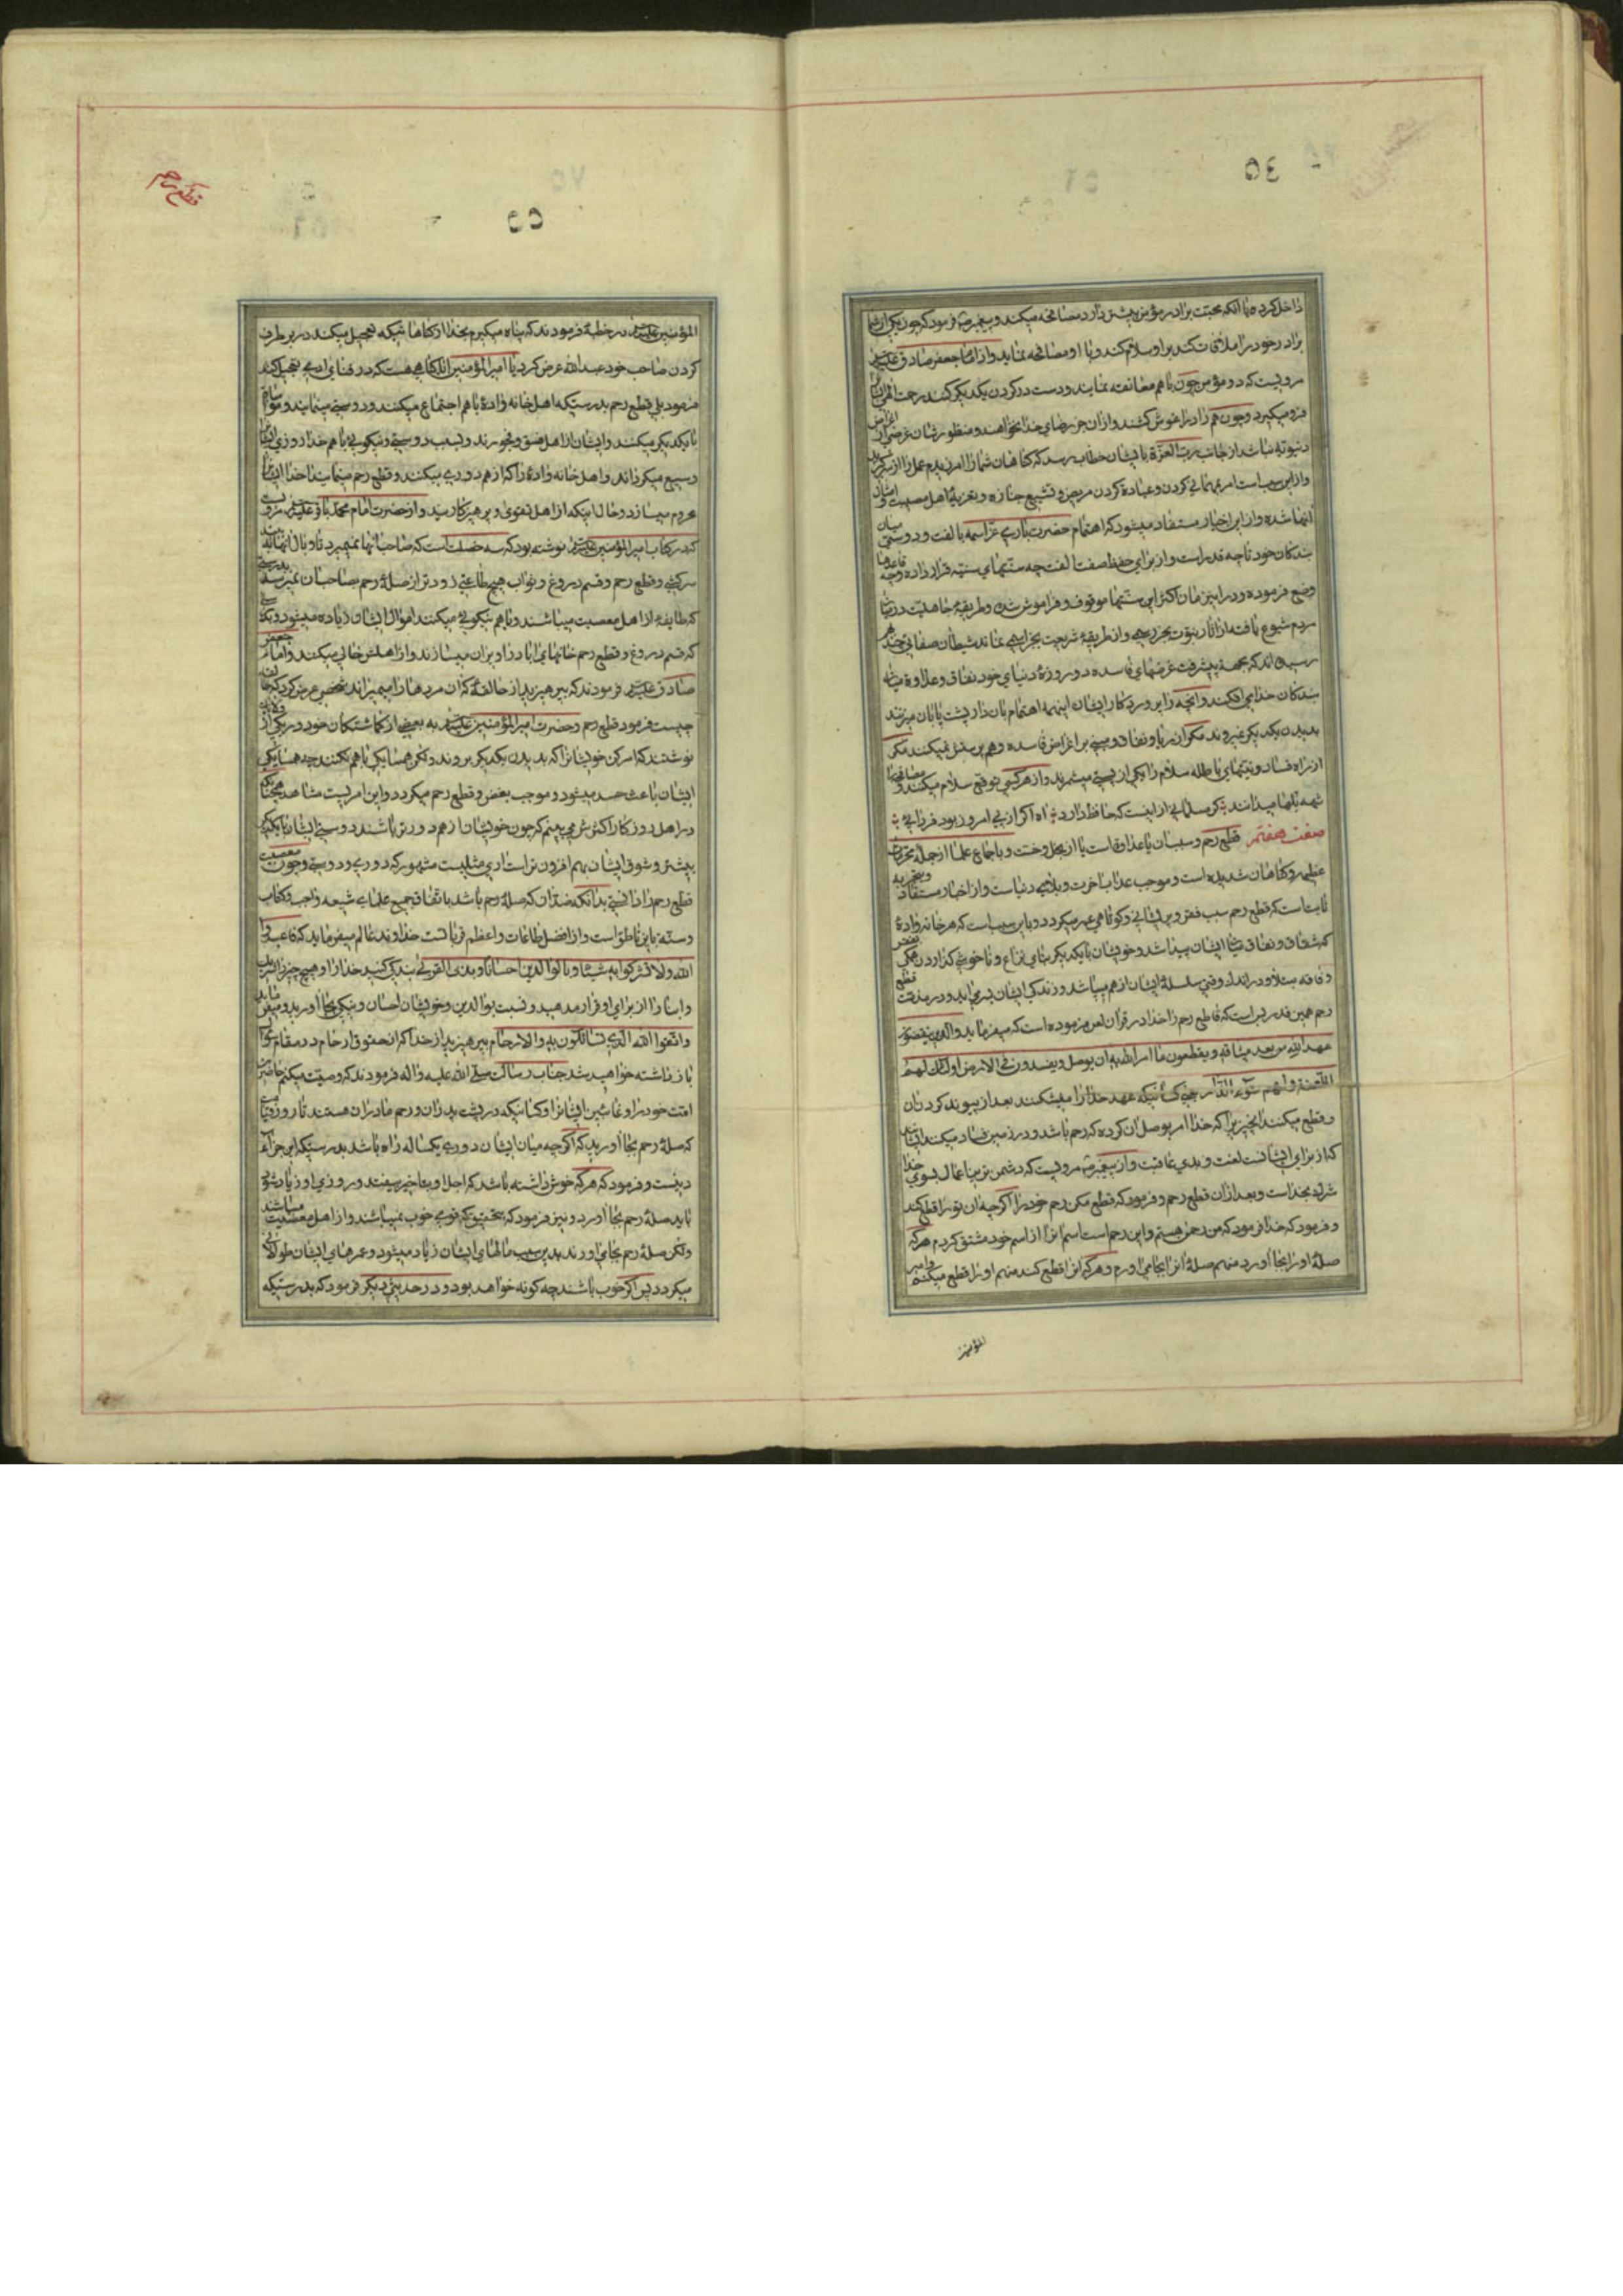 داخل کرده با آنکه محبت برادر مؤمن بیشتر دارد مصافحه میکند و پیغمبر فرمود که چون یکی از شما
برادر خود را ملاقات کند بر او سلام کند و با او مصافحه نماید و از امام جعفر صادق علیه السلام
مرویست که دو مؤمن چون با هم معانقه نمایند و دست در گردن یکدیگر کنند رحمت الهی ایشان را
فرو میگیرد و چون هم را در آغوش کشند و از آن جز رضای خدا نخواهند و منظور شان غرضی از اغراض
دنیویه نباشد از جانب رب العزة بایشان خطاب رسد که گناهان شما را آمرزیدم عمل را از سر گیرید
و از این سبب است امر بمهمانی کردن و عیادة کردن مریض و تشییع جنازه و تعزیهٔ اهل مصیبت و امثال
اینها شده و از این اخبار مستفاد میشود که اهتمام حضرت باری عز اسمه بالفت و دوستی میان
بندگان خود تا چه قدر است و از برای حفظ صفت الفت چه سنتهای سنیه قرار داده و چه قاعدها
وضع فرموده و در این زمان اکثر این سنتها موقوف و فراموش شده و طریقهٔ جاهلیت در میان
مردم شیوع یافته از آثار نبوت بجز و از طریقهٔ شریعت بجز اسمی نماند شیطان صفاتی چند بهم
رسیده اند که بجهة پیشرفت غرضهای فاسده دو روزهٔ دنیای خود نفاق و علاوة میان
بندگان خدا می افکنند و آنچه را پروردگار ایشان اینهمه اهتمام بآن دارد پشت پا بآن میزنند
بدیدن یکدیگر نمیروند مگر از ریا و نفاق دوستی بر اغراض فاسده و هم پرسش نمیکنند مگر
از راه فساد و نیتهای باطله سلام را یکی از پستی میشمرند و از هر کسی توقع سلام میکنند و مصافحه را
شیوهٔ بلها میدانند گر مسلمانی از اینست که حافظ دارد آه اگر از پی امروز بود فردایی
صفت هفتم قطع رحم و سبب آن یا عداوت است یا از بخل و خست و باجماع علما از جملهٔ محرمات
عظیمه و گناهان شدیده است و موجب عذاب آخرت و بلای دنیاست و از اخبار مستفاد و بتجربه
ثابت است که قطع رحم سبب فقر و پریشانی و کوتاهی عمر میگردد و باین سبب است که هر خانوادهٔ
که شقاق و نفاق میان ایشان پیدا شد و خویشان با یکدیگر بنای نزاع و ناخوشی گذاردند همگی بفقر
و فاقه مبتلا و در اندک وقتی سلسلهٔ ایشان از هم میپاشد و زندگی ایشان بسر می آید و در مذمت قطع
رحم همین قدر بس است که قاطع رحم را خدا در قرآن لعن فرموده است که میفرماید والذین ینقضون
عهد الله من بعد میثاقه و یقطعون ما امر الله به ان یوصل و یفسدون فی الارض اولئک لهم
اللعنة و لهم سوء الدار یعنی کسانیکه عهد خدا را میشکنند بعد از پیوند کردن آن
و قطع میکنند آنچیز را که خدا امر بوصل آن کرده که رحم باشد و در زمین فساد میکنند ایشانند
که از برای ایشانست لعنت و بدی عاقبت و از پیغمبر مرویست که دشمن ترین اعمال بسوی خدا
شرک بخداست و بعد از آن قطع رحم و فرمود که قطع مکن رحم خود را اگرچه آن تو را قطع کند
و فرمود که خدا فرمود که من رحمن هستم و این رحم است اسم آنرا از اسم خود مشتق کردم هر که
صلهٔ او را بجا آورد منهم صلهٔ آنرا بجا می آورم و هر که آنرا قطع کند منهم او را قطع میکنم و امیر
المؤمنین
المؤمنین علیه السلام در خطبهٔ فرمودند که پناه میبرم بخدا از گناهانیکه تعجیل میکند در برطرف
کردن صاحب خود عبد الله عرض کرد یا امیر المؤمنین آیا گناهی هست که در فنای آدمی تعجیل کند
فرمود بلی قطع رحم بدرستیکه اهل خانه وادهٔ با هم اجتماع میکنند و دوستی مینمایند و مواساة
با یکدیگر میکنند و ایشان از اهل فسق و فجورند و بسبب دوستی و نیکویی با هم خدا روزی ایشان را
وسیع میگرداند و اهل خانه وادهٔ دیگر از هم دوری میکنند و قطع رحم مینمایند خدا ایشان را
محروم میسازد و حال اینکه از اهل تقوی و پرهیزکارمید و از حضرت امام محمد باقر علیه السلام مرویست
که در کتاب امیر المؤمنین علیه السلام نوشته بود که سه خصلت است که صاحب آنها نمیمیرد تا وبال آنها را ببیند
سرکشی و قطع رحم و قسم دروغ و ثواب هیچ طاعتی زودتر از صلهٔ رحم بصاحب آن نمیرسد بدرستی
که طایفهٔ از اهل معصیت میباشند و با هم نیکویی میکنند اموال ایشان زیاده میشود و بدرستی
که قسم دروغ و قطع رحم خانهای آباد را ویران میسازند و از اهلش خالی میکند و امام جعفر
صادق علیه السلام فرمودند که بپرهیزید از حالقه که آن مردها را میمیراند شخصی عرض کرد که حالقه
چیست فرمود قطع رحم و حضرت امیر المؤمنین علیه السلام به بعضی از گماشتگان خود در یکی از ولایات
نوشتند که امر کن خویشانرا که بدیدن یکدیگر بروند و لکن همسایگی با هم نکنند چه همسایگی
ایشان باعث حسد میشود و موجب بغض و قطع رحم میگردد و این امریست مشاهد همچنانکه
در اهل روزگار اکثرش می بینم که چون خویشان از هم دورتر باشند دوستی ایشان با یکدیگر
بیشتر و شوق ایشان بهم افزون تر است آری مثلیست مشهور که دوری و دوستی و چون معصیت
قطع رحم را دانستی بدانکه ضد آن که صلهٔ رحم باشد باتفاق جمیع علمای شیعه واجب و کتاب
و سنة باین ناطق است و از افضل طاعات و اعظم قرباتست خداوند عالم میفرماید که فاعبدوا
الله و لا تشرکوا به شیئا و بالوالدین احسانا و بذی القربی بندگی کنید خدا را و هیچ چیز را شریک
و انباز از برای او قرار مدهید و نسبت بوالدین و خویشان احسان و نیکی بجا آورید و میفرماید
واتقوا الله الذی تسائلون به والارحام بپرهیزید از خدا که از حقوق ارحام در مقام سؤال
باز داشته خواهید شد جناب رسالت صلی الله علیه و آله فرمودند که وصیت میکنم حاضرین
امت خود را و غائبین ایشانرا و کسانیکه در پشت پدران و رحم مادران هستند تا روز قیامت
که صلهٔ رحم بجا آورید که اگرچه میان ایشان دوری یکساله راه باشد بدرستیکه این جزء
دینست و فرمود که هر که خوش داشته باشد که اجل او بتأخیر بیفتد و روزی او زیاد شود
باید صلهٔ رحم بجا آورد و نیز فرمود که بتحقیق که قومی خوب نمیباشند و از اهل معصیت میباشند
ولکن صلهٔ رحم بجا می آورند بدین سبب مالهای ایشان زیاد میشود و عمرهای ایشان طولانی
میگردد پس اگر خوب باشند چه گونه خواهد بود و در حدیثی دیگر فرمود که بدرستیکه